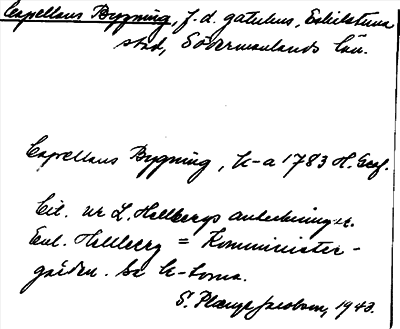 Capellans Bygning, f. d. gatuhus, Eskilstuna
stad, Södermanlands län.
Capellans Bygning, U-a 1783 H. Geof.
Cit. ur L. Hellbergs anteckningar.
Enl. Hellberg = Komminister-
gården. Se U-torna.
S. Plænge Jacobson, 1943.